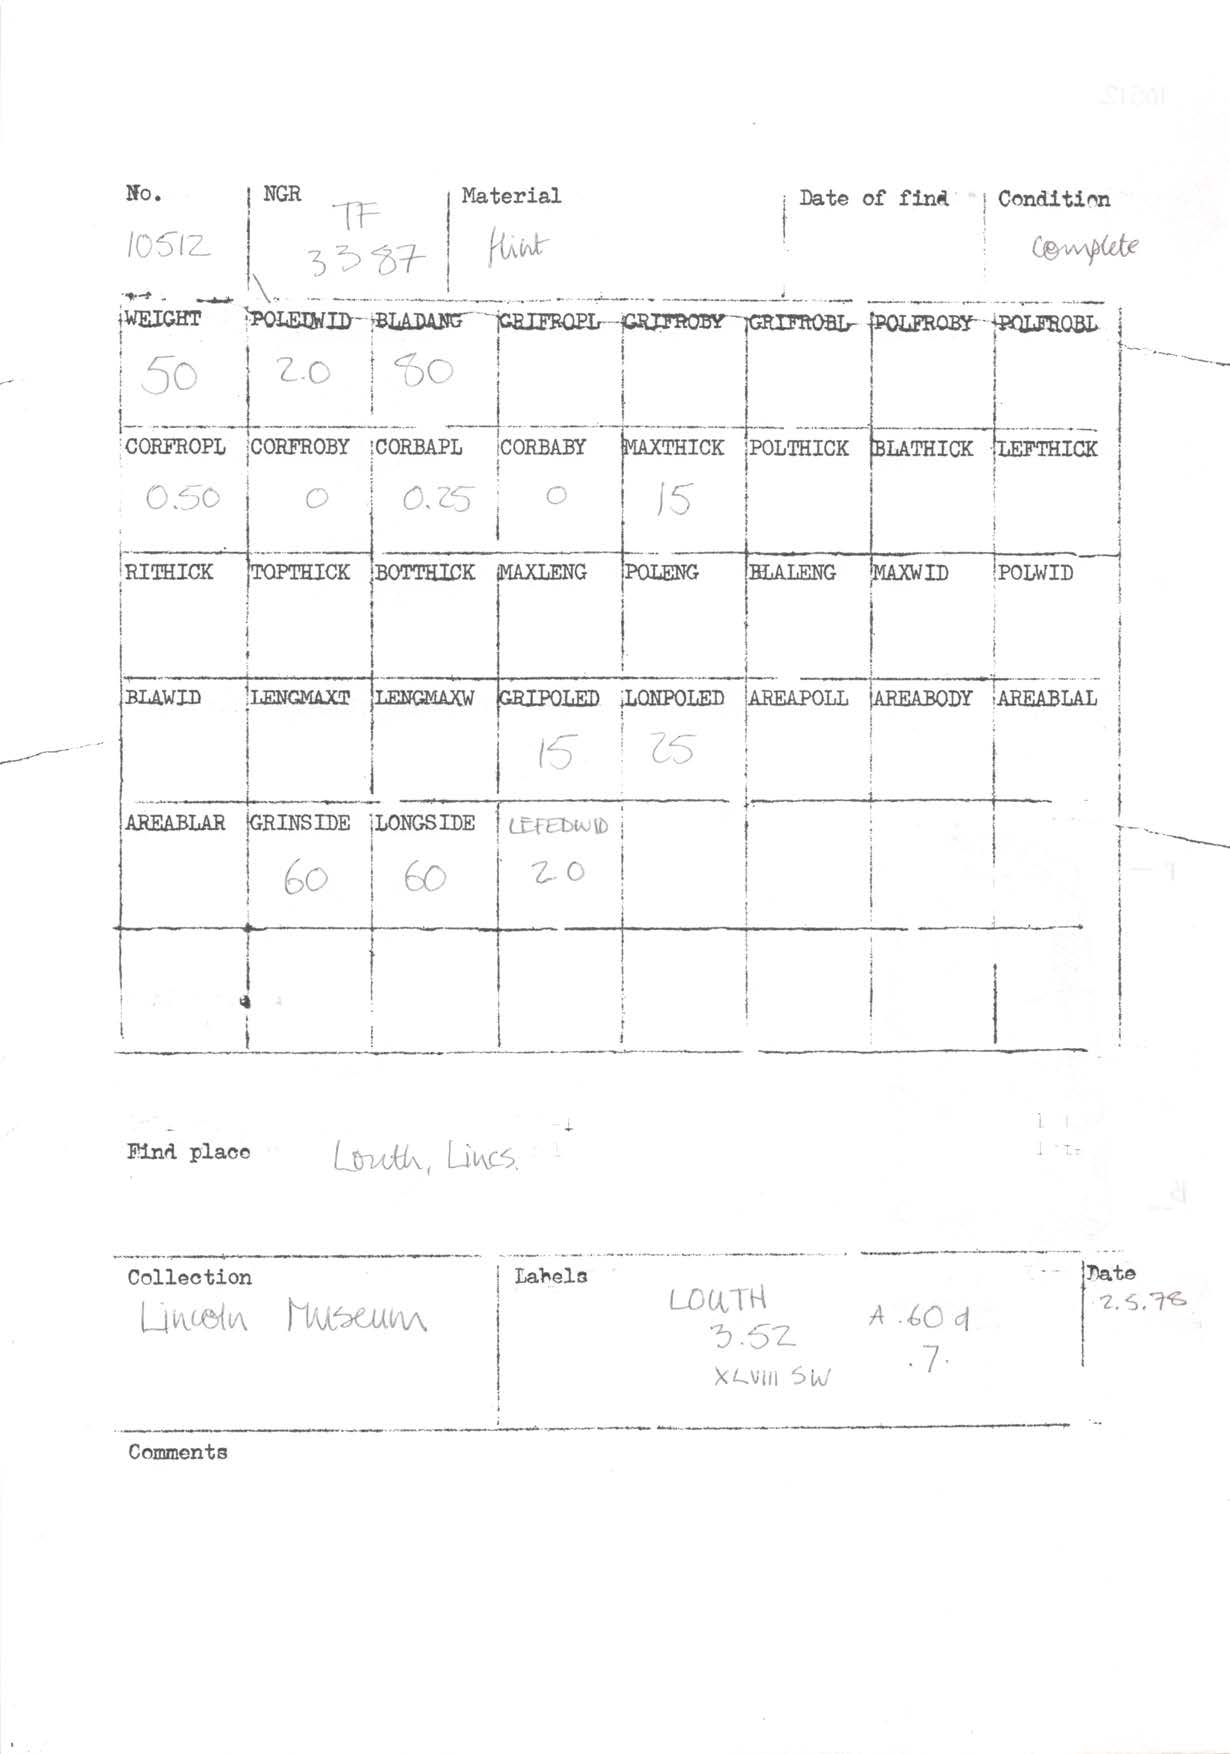 No. NGR Material Date of find Condition
TF
10512 3387 flint complete
WEIGHT POLEDWID BLADANG GRIFROPL GRIFROBY GRIFROBL POLFROBY POLFROBL
50 2.0 80
CORFROPL CORFROBY CORBAPL CORBABY MAXTHICK POLTHICK BLATHICK LEFTHICK
0.50 0 0.25 0 15
RITHICK TOPTHICK BOTTHICK MAXLENG POLENG BLALENG MAXWID POLWID
BLAWID LENGMAXT LENGMAXW GRIPOLED LONPOLED AREAPOLL AREABODY AREABLAL
15 25
AREABLAR GRINSIDE LONGSIDE LEFEDWID
60 60 2.0
Find place Louth, Lincs.
Collection Labels Date
Lincoln Museum LOUTH 2.5.78
3.52 A.60 d
XLVIII SW .7.
Comments